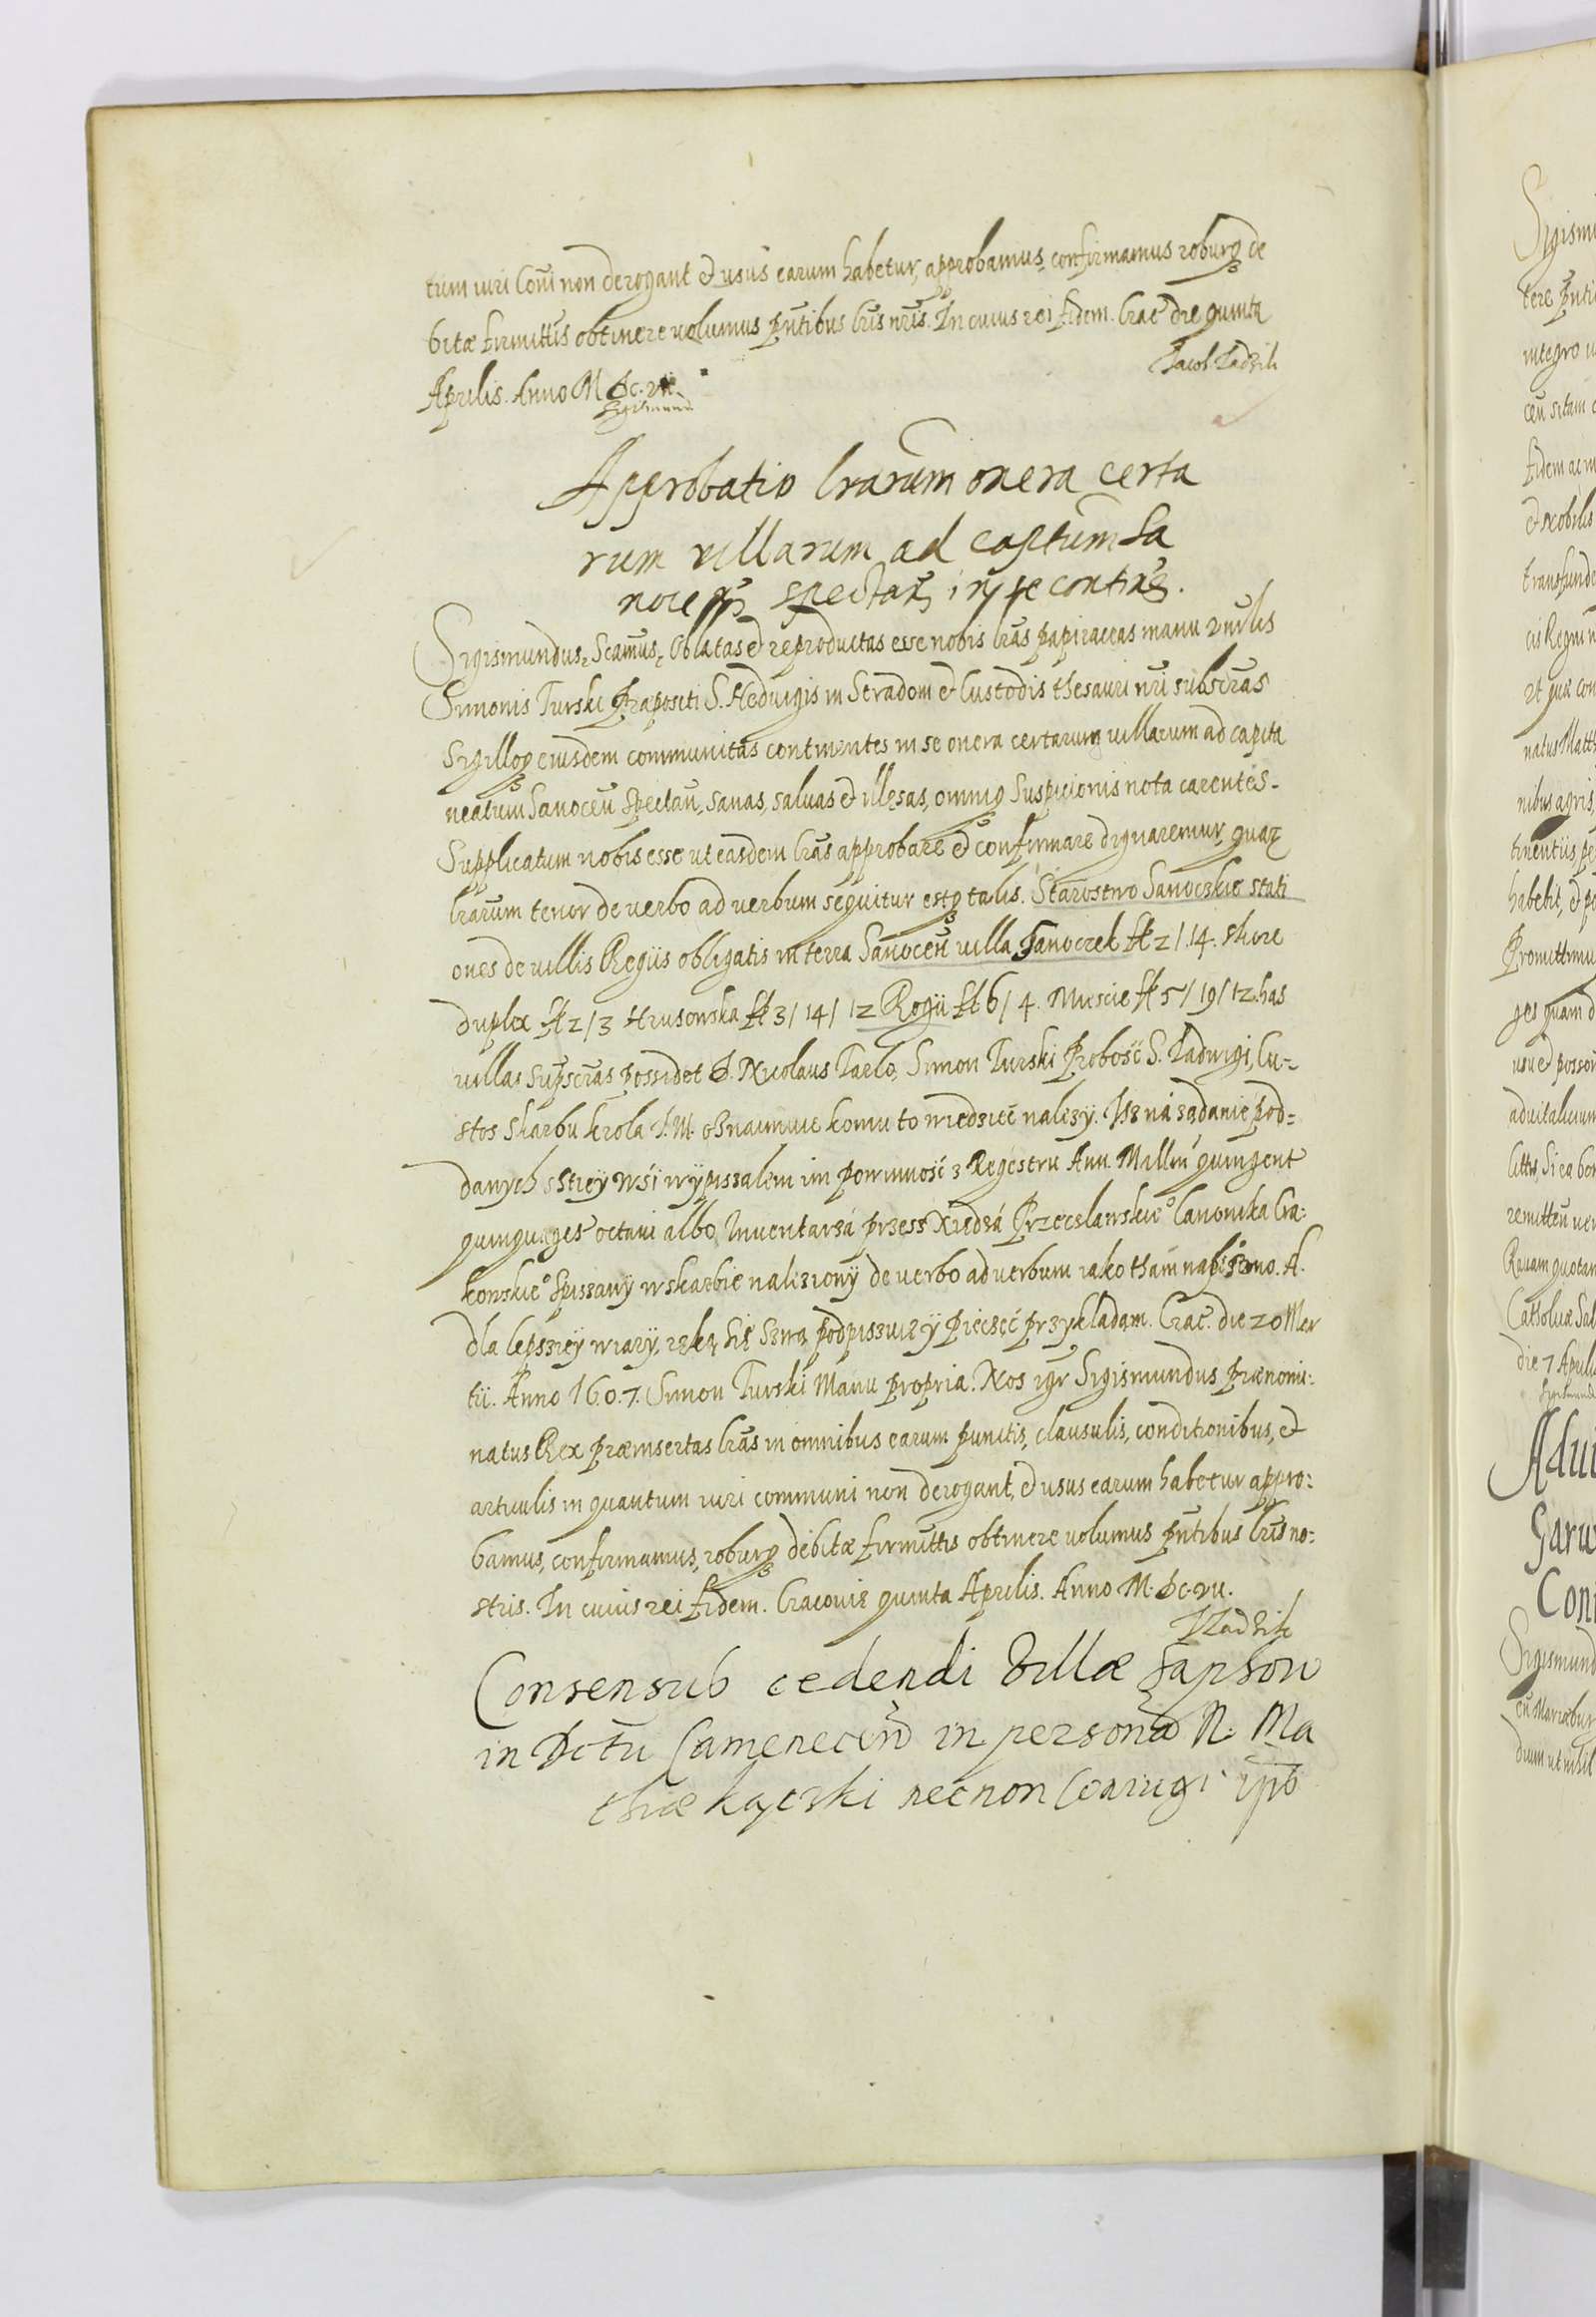 tum iuri Coñi non derogant et usus earum habetur, approbamus, confirmamus roburq₃ de
bitæ firmittis obtinere volumus pñtibus lris nris. In cuius rei fidem. Crac die quinta
Aprilis. Anno M.DC.VII.
Jacob Zadzik
Sigismund
Approbatio lrarum onera certa
rum villarum ad captum Sa
noceñ spectañ in se contiñ.
Sigismundus. Scamus. Oblatas et reproductas esse nobis lras papiraceas manu Vnrlis
Simonis Turski Præpositi S. Hedvigis in Stradom et Custodis thesauri nri subscras
Sigilloq₃ eiusdem communitas continentes in se onera certarum villarum ad capita
neatum Sanoceñ Spectañ, sanas, salvas et illesas, omniq₃ suspicionis nota carentes.
Supplicatum nobis esse ut easdem lras approbare et confirmare dignaremur, quar
lrarum tenor de verbo ad verbum sequitur estq₃ talis. Starostwo Sanoczkie stati
ones de villis Regiis obligatis in terra Sanoceñ villa Sanoczek ff 2/14. Skore
duplex ff 2/3 Hrusowska ff 3/14/12 Rogii ff 6/4. Muscie ff 5/19/12. has
villas supscras possidet G. Nicolaus Tarlo, Simon Turski Probość S. Jadwigi, Cu-
stos Skarbu krola J.M. oznaimuie komu to wiedziec nalezy. Isz ná ządanie pod-
danych sstey wśi wypisalem im powinność z Regestru Ann. Millmi quingent
quinquages octavi albo Inventarzá przess Xiędzá Przecslawskie° Canonika Cra-
kowskie° spissany w skarbie naleziony de verbo ad verbum iako tham napiszono. A.
dla lepszey wiary, ręką się swą podpiszuię y pieczęć przykladam. Crac. die 20 Mar
tii. Anno 1607. Simon Turski Manu propria. Nos igr Sigismundus prænomi-
natus Rex præinsertas lras in omnibus earum punctis, clausulis, conditionibus, et
articulis in quantum iuri communi non derogant, et usus earum habetur appro-
bamus, confirmamus, roburq₃ debitæ firmittis obtinere volumus pñtibus lris no-
stris. In cuius rei fidem. Cracovie quinta Aprilis. Anno M.DC.VII.
J Zadzik
Consensus cedendi Villæ
in Dctu Cameneceñ in persona N. Ma
thiæ kączki necnon Coniugi ipso